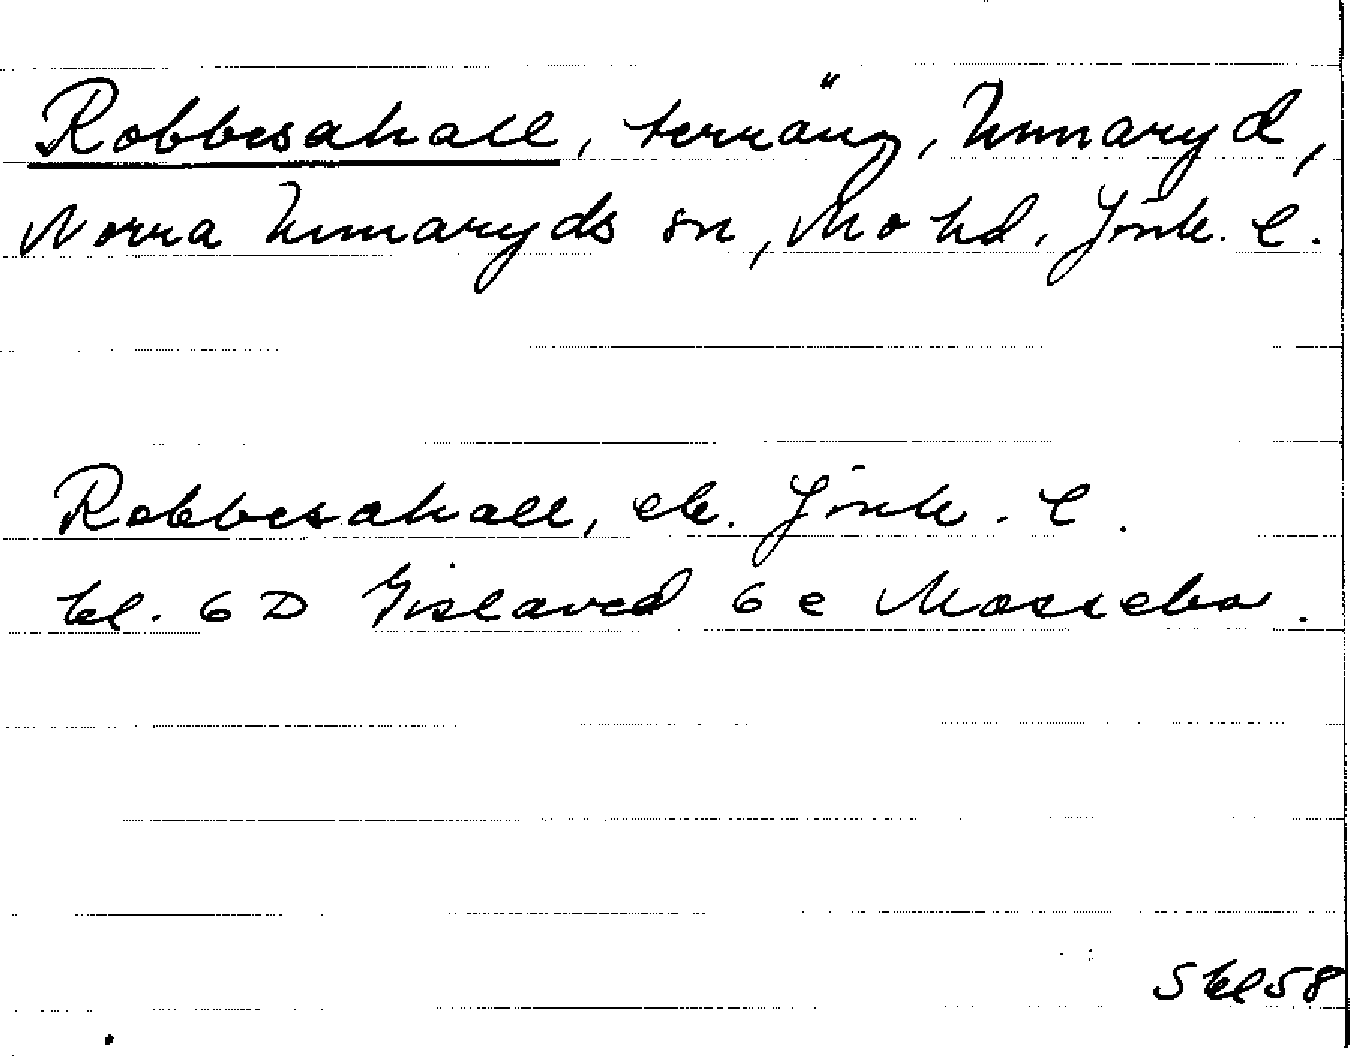 Robbesahall, terräng, Unnaryd,
Norra Unnaryds sn, Mo hd, Jönk. l.
Robbesahall, ek. Jönk. l.
bl. 6 D Gislaved 6 e Mossebo.